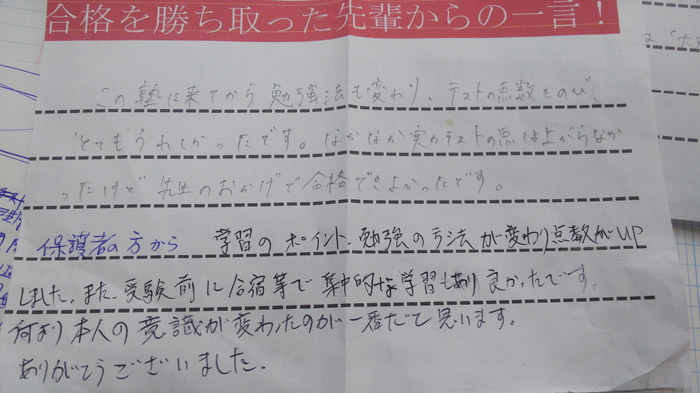 合格を勝ち取った先輩からの一言!
この塾に来てから勉強法も変わり、テストの点数ものび、
とてもうれしかったです。なかなか実力テストの点は上がらなか
ったけど先生のおかげで合格できよかったです。
保護者の方から 学習のポイント、勉強の方法が変わり点数がUP
しました。また、受験前に合宿等で集中的な学習もあり良かったです。
何より本人の意識が変わったのが一番だと思います。
ありがとうございました。